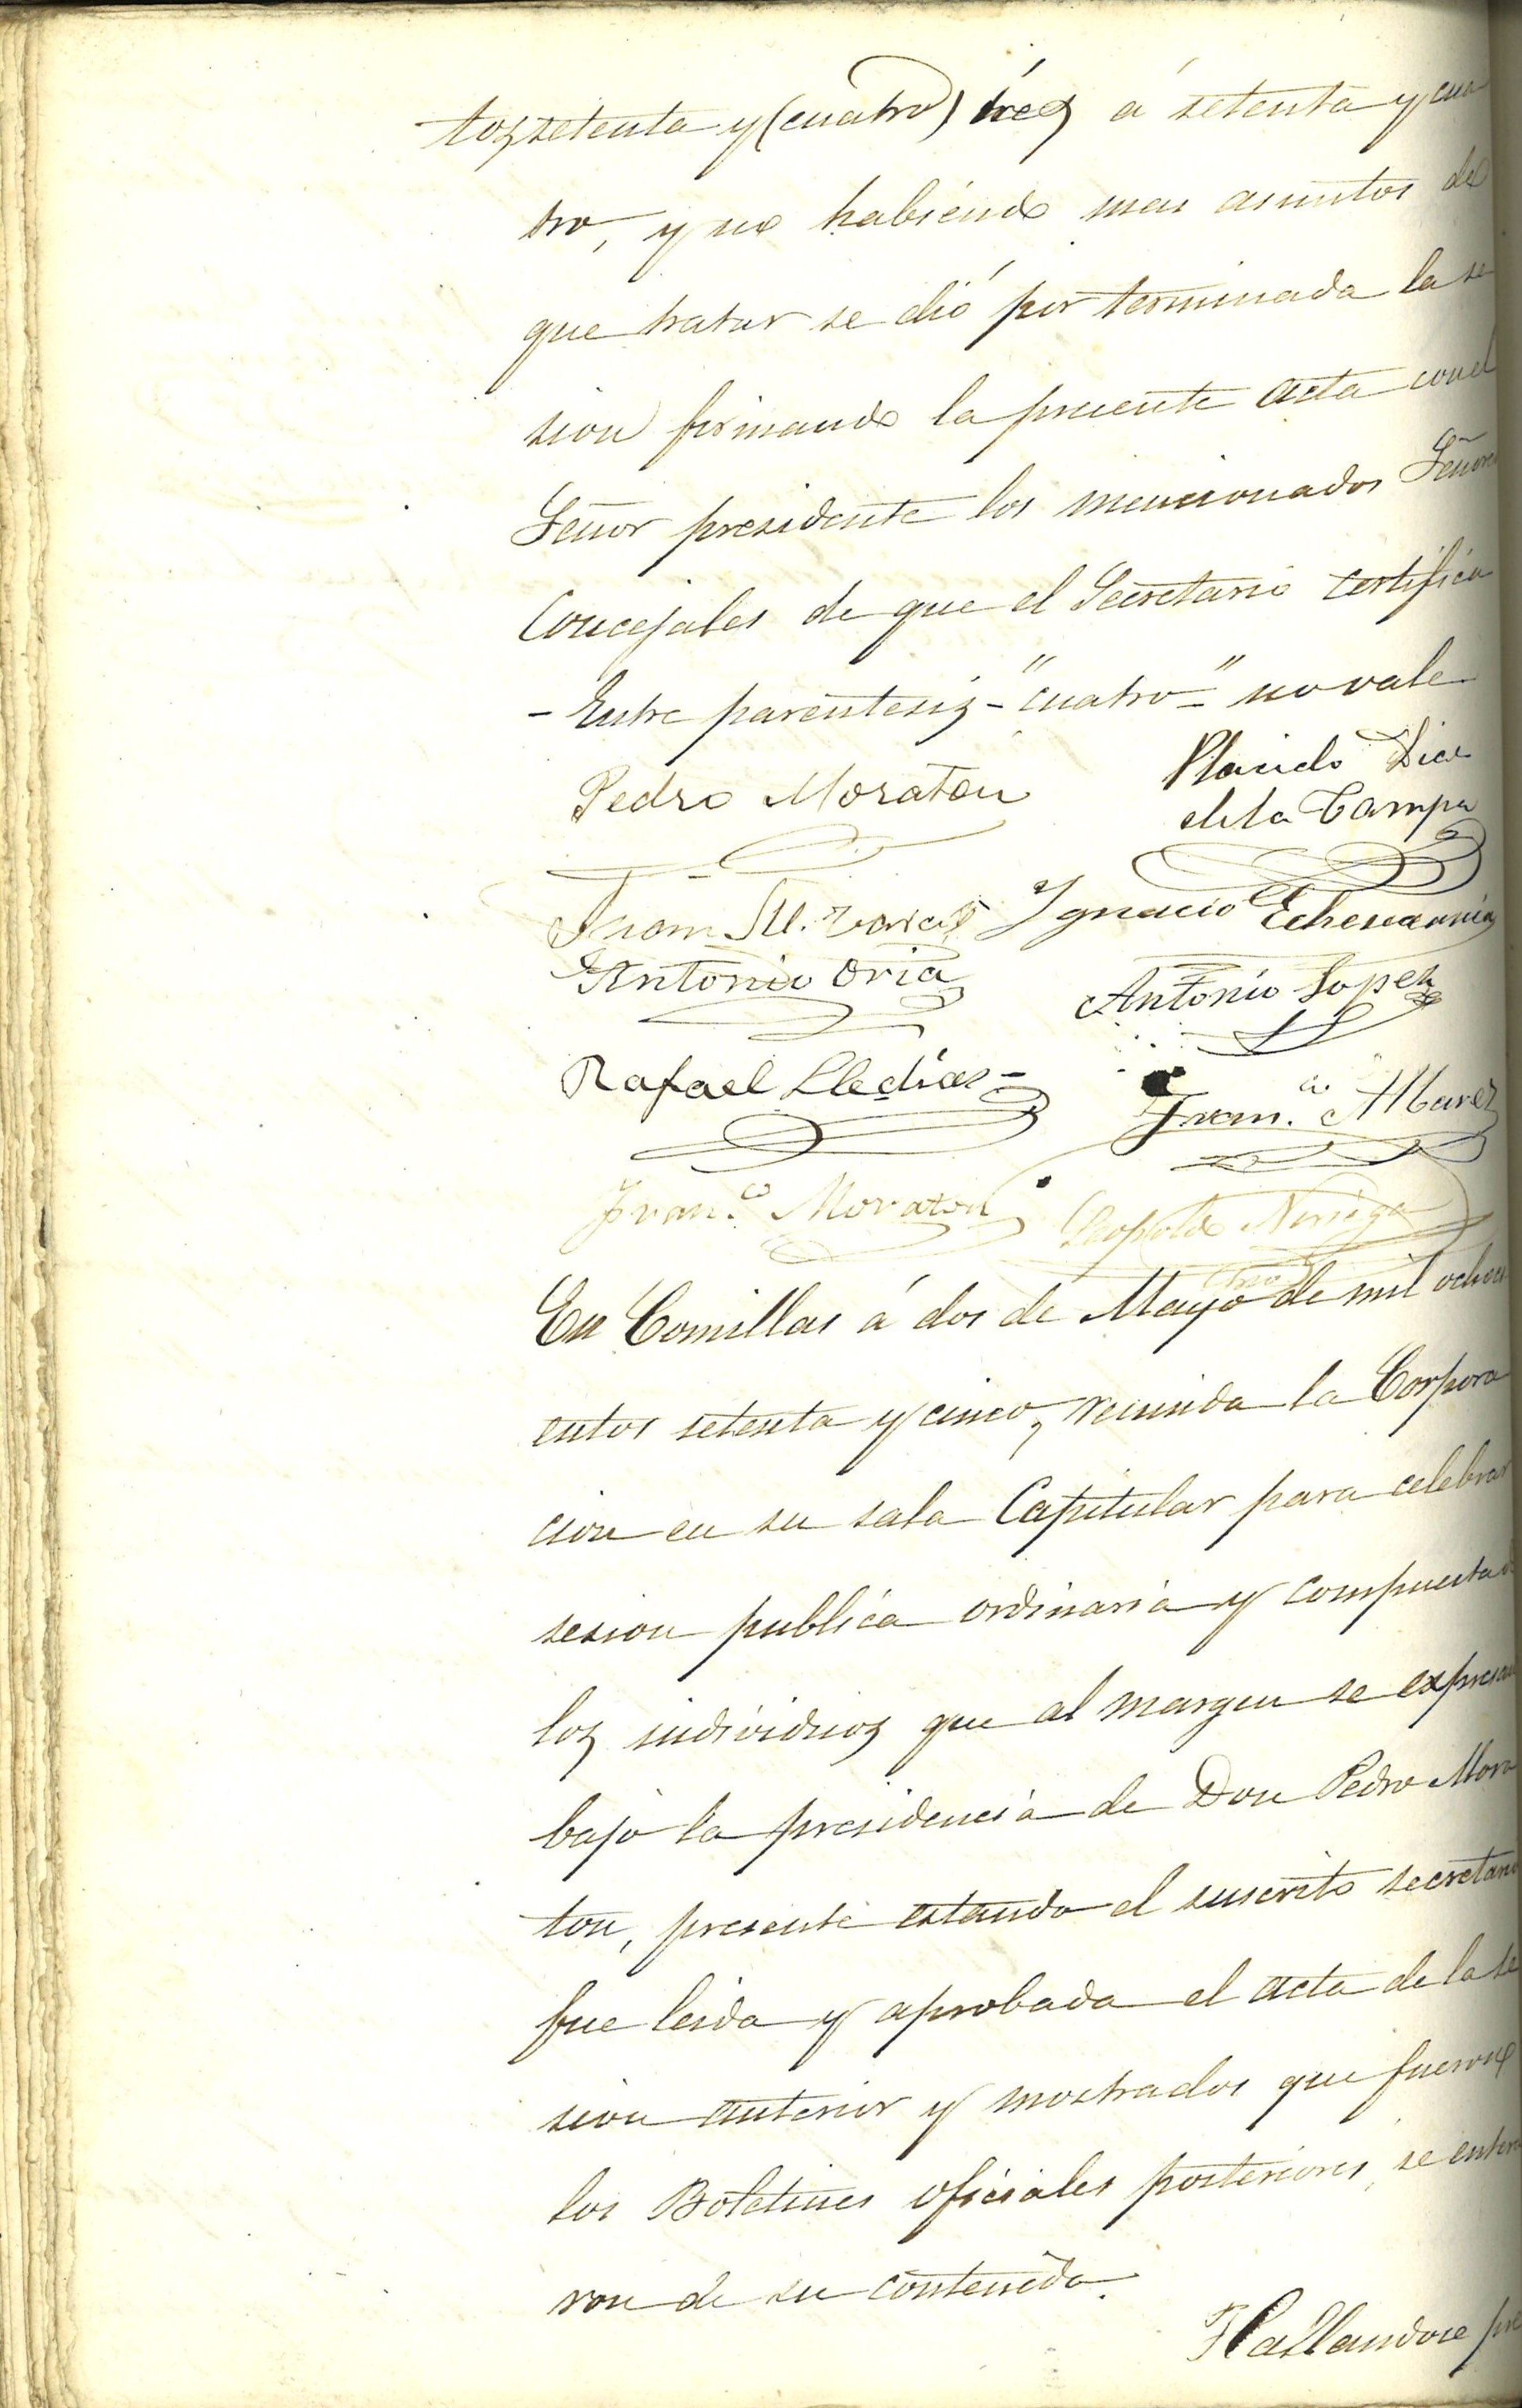 tos setenta y (cuatro) trés á setenta y cua
tro, y no habiendo mas asuntos de
que tratar se dió por terminada la se
sion firmando la presente acta con el
Señor presidente los mencionados Señores
Concejales de que el Secretario certifica
- Entre parentesis - "cuatro" - no vale
Pedro Moraton
Placido Diaz
de la Campa
Juan M.
Ignacio Echevarria
Antonio Oria
Antonio Lopez
Rafael Lledias
Fran.co Alvarez
Fran.co Moraton
Leopoldo Noriega
Srio
En Comillas á dos de Mayo de mil ochoci
entos setenta y cinco, reunida la Corpora
cion en su sala Capitular para celebrar
sesion publica ordinaria y compuesta de
los individuos que al margen se expresan
bajo la presidencia de Don Pedro Mora
ton, presente estando el suscrito secretario
fue leida y aprobada el acta de la se
sion anterior y mostrados que fueron
los Boletines oficiales posteriores, se entera
ron de su contenido.
Hallandose pre